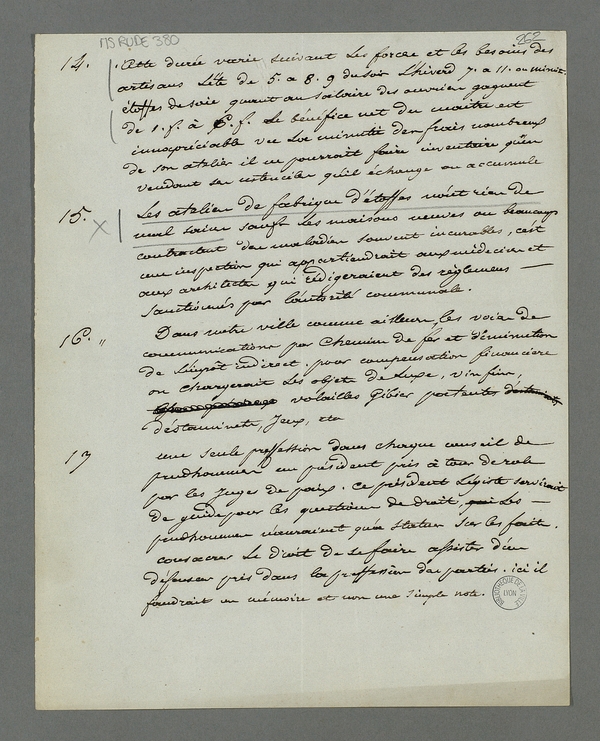 MS RUDE 380
262
14. Cette durée varie suivant les forces et les besoins des
artisans L'été de 5 a 8. 9 du soir L'hiverd 7. a 11. ou minuit.
étoffes de soie quant au salaire des ouvriers gagnent
de 1. f. à 6. f. Le bénéfice net du maitre est
innapréciable vu Les minutie des frais nombreux
de son atelier il ne pourrait faire inventaire qu'en
vendant ses ustenciles qu'il échange ou accumule
15. Les ateliers de fabrique d'étoffes n'ont rien de
mal sain sauf les maisons neuves ou beaucoup
contractent des maladies souvent incurables, c'est
une inspection qui appartiendrait aux médecins et
aux architectes qui rédigeraient des règlemens —
sanctionnés par l'autorité communale.
16. " Dans notre ville comme ailleurs, les voies de
communications par chemin de fer et diminution
de L'impôt indirect. pour compensation financière
on chargerait Les objets de Luxe, vin fin,
volailles Gibier patentes
d'estaminets, Jeux, etc
17 une seule proffession dans chaque conseil de
prudhommes un président pris à tour de role
par les Juges de paix. Ce président Légiste servirait
de guide pour les questions de droit, Les —
prudhommes n'auraient qu'a statuer sur les faits.
consacrer Le Droit de se faire assister d'un
défenseur pris dans la proffession des parties. ici il
faudrait un mémoire et non une simple note.
BIBLIOTHEQUE DE LA VILLE
LYON